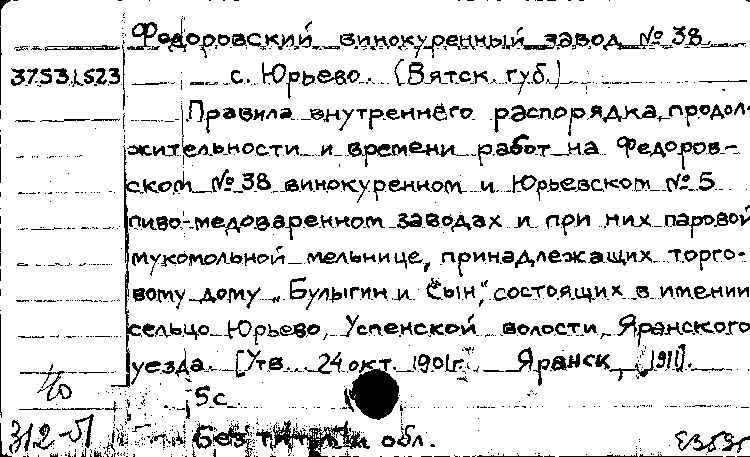 Федоровский винокуренный завод № 38
37531523 с. Юрьево. (Вятск. губ.)
Правила внутреннего распорядка, продол-
жительности и времени работ на Федоров-
ском № 38 винокуренном и Юрьевском № 5
пиво-медоваренном заводах и при них паровой
мукомольной мельнице, принадлежащих торго-
вому дому „Булыгин и Сын", состоящих в имении
сельцо Юрьево, Успенской волости, Яранского
уезда. [Утв. 24 окт. 1901г. Яранск, [1911].
5с.
Без титул. и обл.